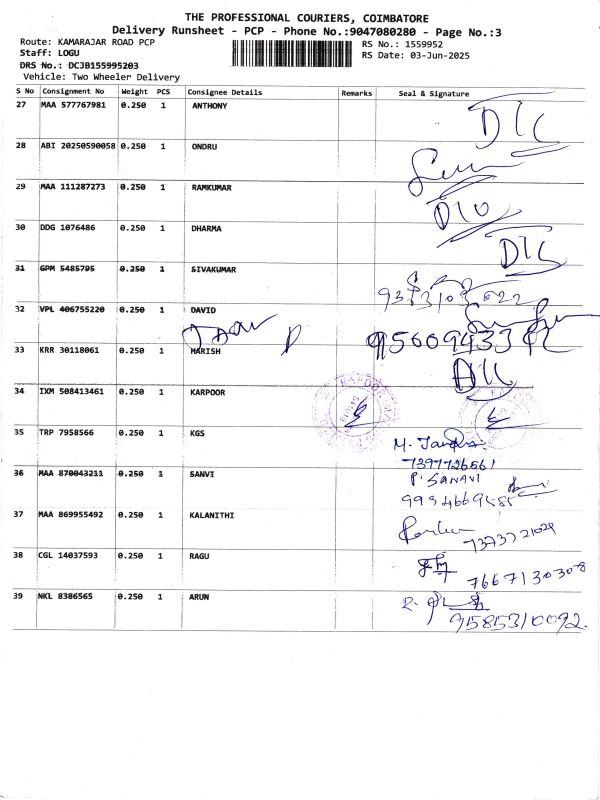 THE PROFESSIONAL COURIERS, COIMBATORE
Delivery Runsheet - PCP - Phone No.:9047080280 - Page No.:3
Route: KAMARAJAR ROAD PCP
RS No.: 1559952
Staff: LOGU
RS Date: 03-Jun-2025
DRS No.: DCJB155995203
Vehicle: Two Wheeler Delivery
S No Consignment No Weight PCS Consignee Details Remarks Seal & Signature
27 MAA 577767981 0.250 1 ANTHONY
28 ABI 20250590058 0.250 1 ONDRU
29 MAA 111287273 0.250 1 RAMKUMAR
30 DDG 1076486 0.250 1 DHARMA
31 GPM 5485795 0.250 1 SIVAKUMAR
32 VPL 406755220 0.250 1 DAVID
33 KRR 30118061 0.250 1 HARISH
34 IXM 508413461 0.250 1 KARPOOR
35 TRP 7958566 0.250 1 KGS
7397726561
36 MAA 870043211 0.250 1 SANVI
P. SANAVI
9994669585
37 MAA 869955492 0.250 1 KALANITHI
38 CGL 14037593 0.250 1 RAGU
76671303078
39 NKL 8386565 0.250 1 ARUN
9585310092.